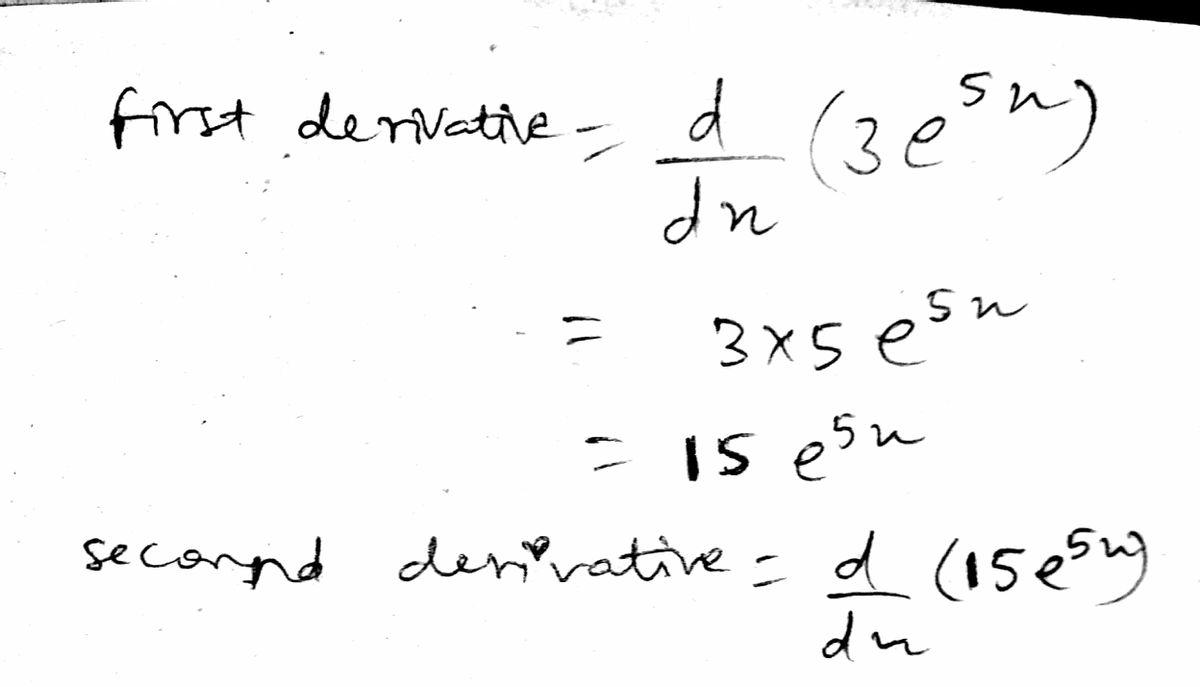 first derivative = d/dx (3e^5x)
= 3×5 e^5x
= 15 e^5x
seconnd derivative = d/dx (15e^5x)